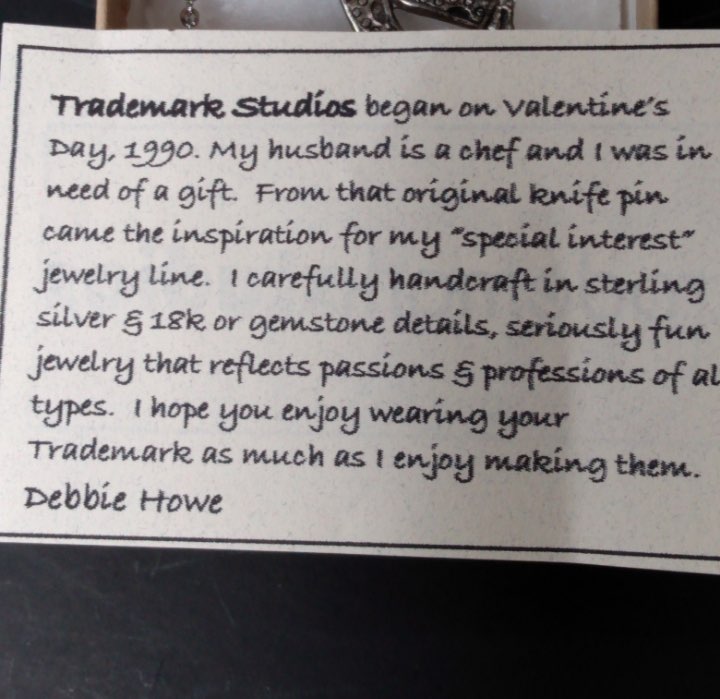 Trademark Studios began on Valentine's
Day, 1990. My husband is a chef and I was in
need of a gift. From that original knife pin
came the inspiration for my "special interest"
jewelry line. I carefully handcraft in sterling
silver & 18k or gemstone details, seriously fun
jewelry that reflects passions & professions of al
types. I hope you enjoy wearing your
Trademark as much as I enjoy making them.
Debbie Howe